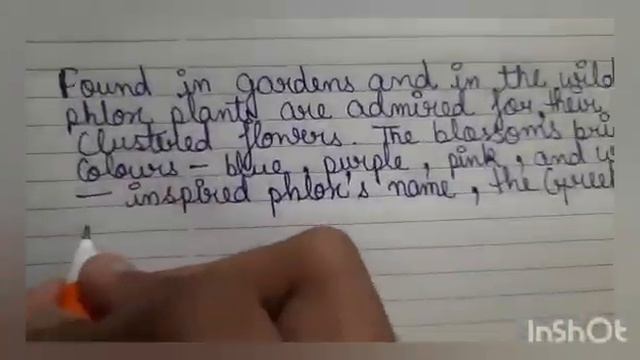 Found in gardens and in the wild
phlox plants are admired for their
clustered flowers. The blossoms bri
colours — blue, purple, pink, and
— inspired phlox's name, the Greek
InShOt